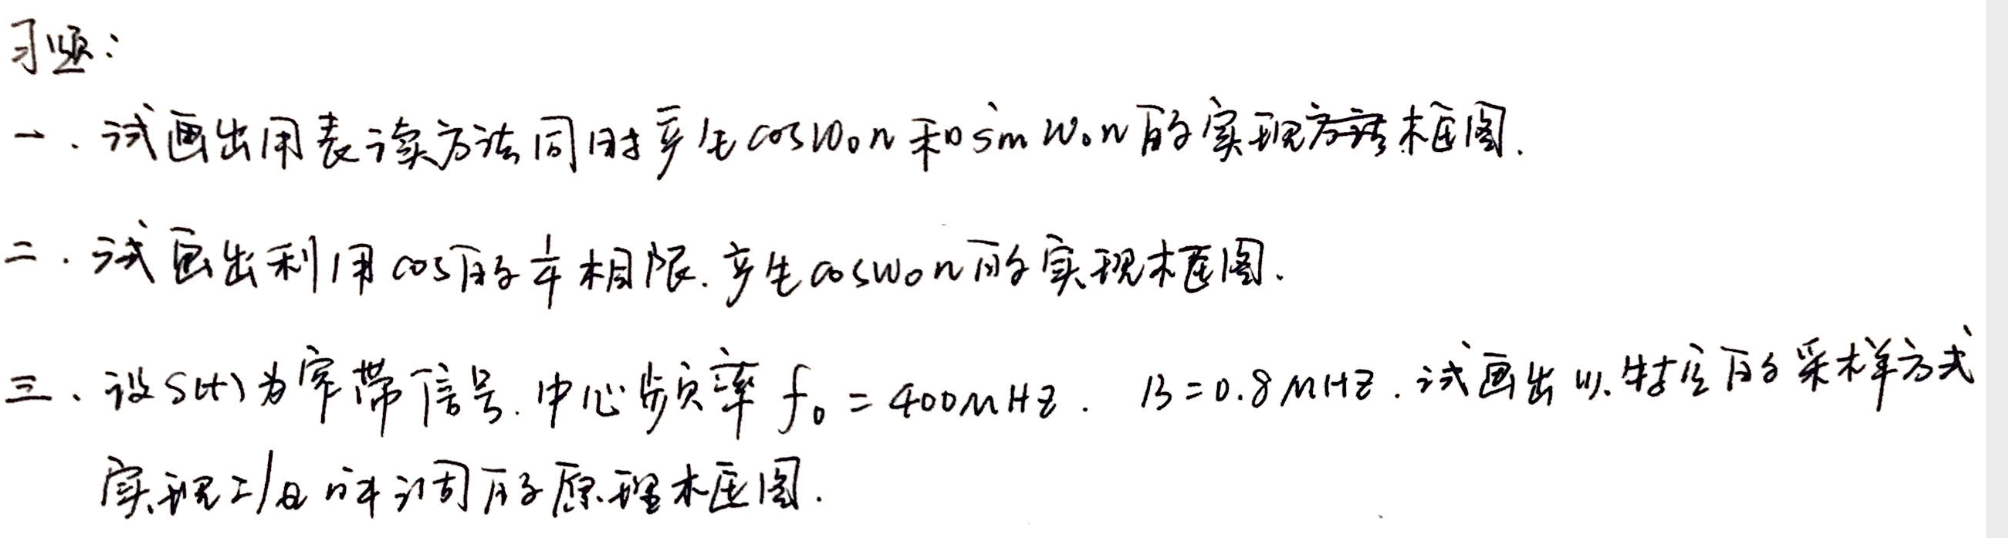 习题:
一. 试画出用表读方法同时产生cosω₀n和sinω₀n的实现方法框图.
二. 试画出利用cos的1/4相限.产生cosω₀n的实现框图.
三. 设S(t)为窄带信号.中心频率f₀=400MHz. B=0.8MHz.试画出以特定的采样方式
实现I/Q解调的原理框图.